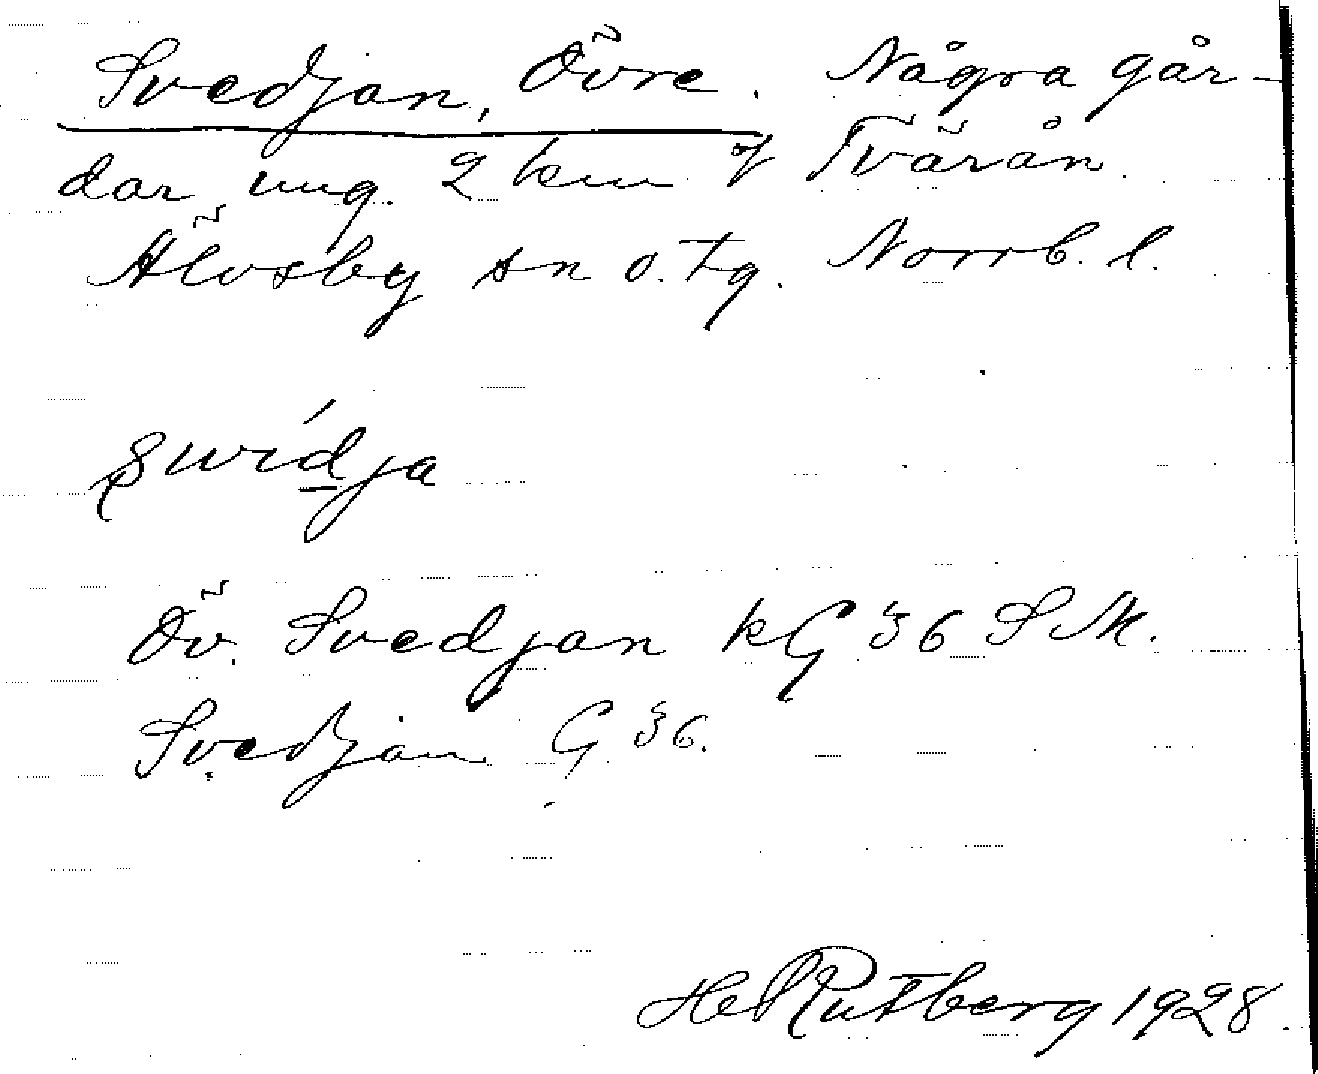 Svedjan, Övre. Några går-
dar ung. 2 km of Tvärån
Älvsby sn o. tg. Norrb. l.
swidja
Öv. Svedjan kG 36 S M.
Svedjan G 36.
Hel Rutberg 1928